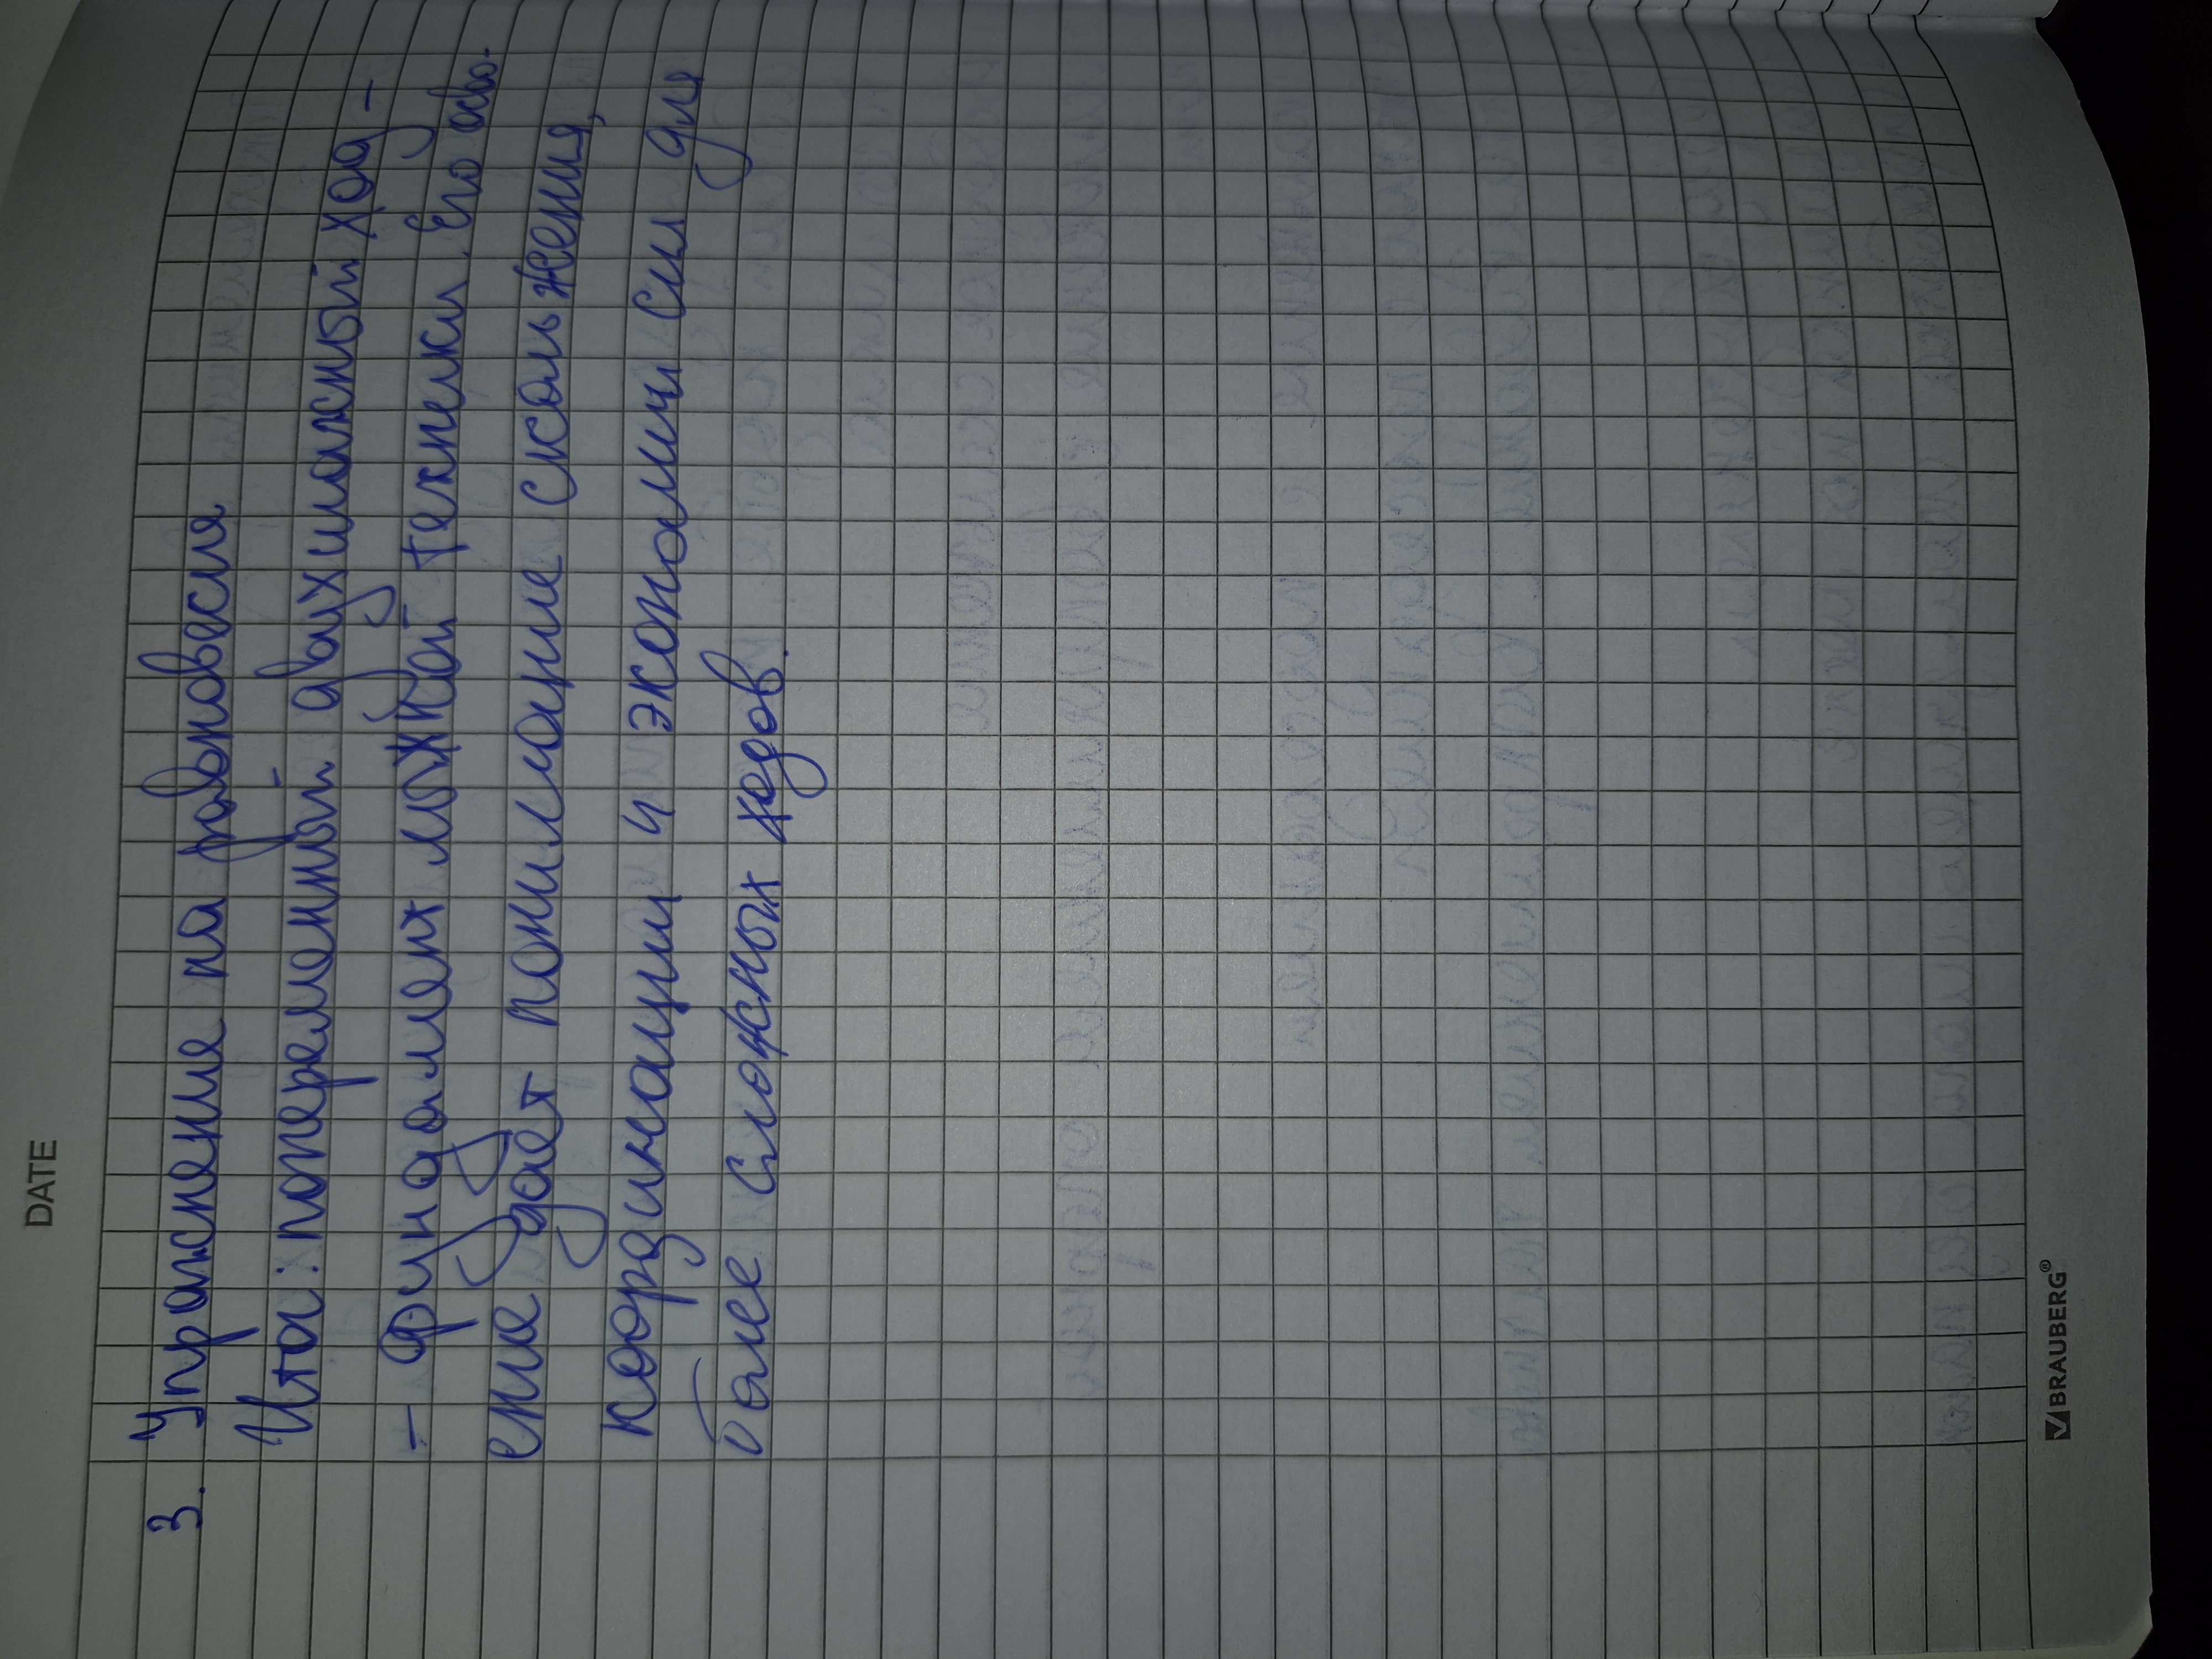 DATE
3. Упражнение на равновесия
Итог: попеременный двухшажный ход -
- фундамент лыжной техники. Его осво-
ение дает понимание скольжения,
координации и экономии сил для
более сложных ходов.
BRAUBERG®